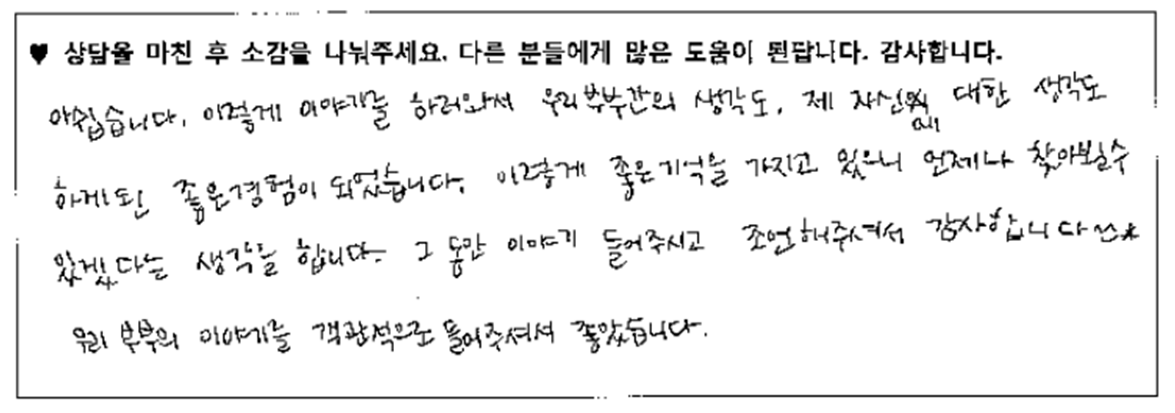 ♥ 상담을 마친 후 소감을 나눠주세요. 다른 분들에게 많은 도움이 된답니다. 감사합니다.
아쉽습니다. 이렇게 이야기를 하러와서 우리부부간의 생각도, 제 자신에 대한 생각도
하게된 좋은경험이 되었습니다. 이렇게 좋은기억을 가지고 있으니 언제나 찾아보실수
있겠다는 생각을 합니다. 그 동안 이야기 들어주시고 조언해주셔서 감사합니다 ^^*
우리 부부의 이야기를 객관적으로 들어주셔서 좋았습니다.